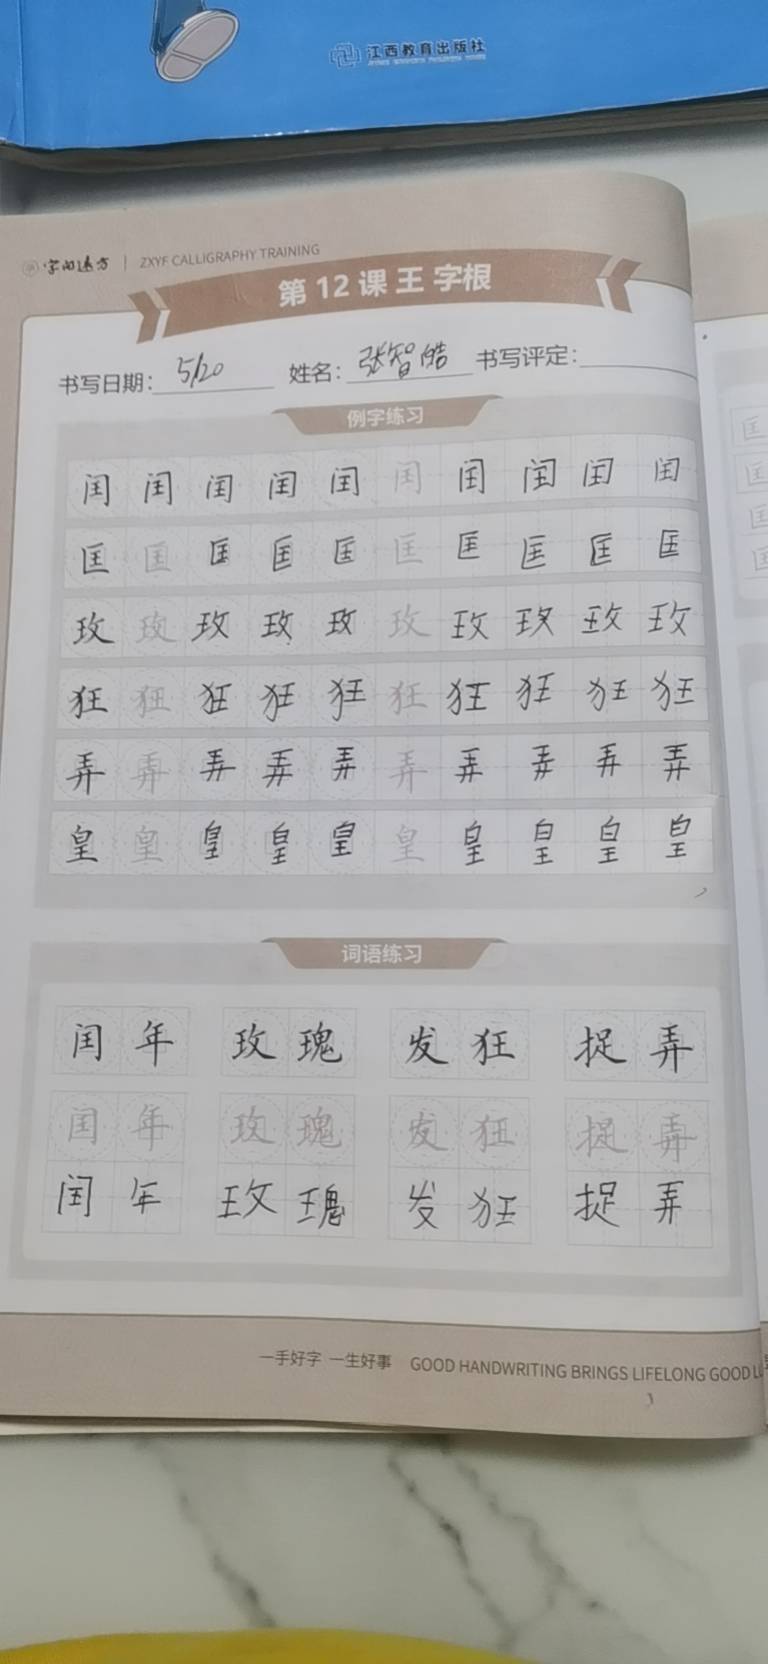 江西教育出版社
字向远方 | ZXYF CALLIGRAPHY TRAINING
第 12 课 王 字根
书写日期: 5/20 姓名: 张智皓 书写评定:
例字练习
闰 闰 闰 闰 闰 闰 闰 闰 闰 闰
匡 匡 匡 匡 匡 匡 匡 匡 匡 匡
玫 玫 玫 玫 玫 玫 玫 玫 玫 玫
狂 狂 狂 狂 狂 狂 狂 狂 狂 狂
弄 弄 弄 弄 弄 弄 弄 弄 弄 弄
皇 皇 皇 皇 皇 皇 皇 皇 皇 皇
词语练习
闰 年 玫 瑰 发 狂 捉 弄
闰 年 玫 瑰 发 狂 捉 弄
闰 年 玫 瑰 发 狂 捉 弄
一手好字 一生好事 GOOD HANDWRITING BRINGS LIFELONG GOOD
匡
匡
匡
匡